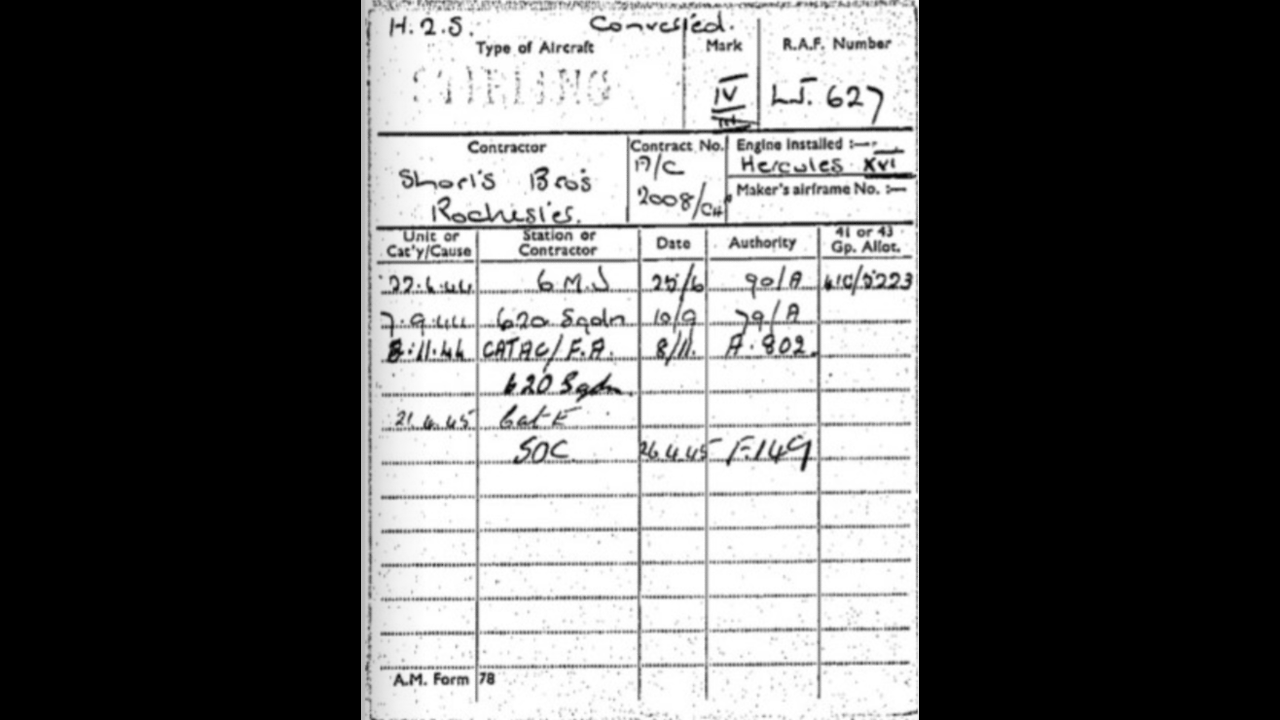 H.2.S. Converted.
Type of Aircraft Mark R.A.F. Number
STIRLING IV LJ. 627
III
Contractor Contract No. Engine installed :—
Short's Bros A/C Hercules XVI
Rochester. 2008/CH Maker's airframe No. :—
Unit or Cat'y/Cause Station or Contractor Date Authority 41 or 43 Gp. Allot.
22.6.44 6 M.U 25/6 90/A 41G/5223
7.9.44 620 Sqdn 10/9 79/A
8.11.44 CATAC/F.A. 8/11. A.802.
620 Sqdn.
21.4.45 Cat E
SOC 26.4.45 F.149
A.M. Form 78